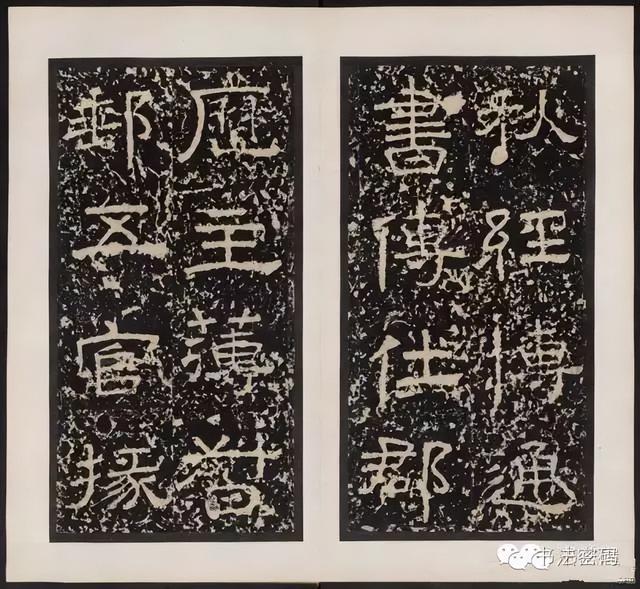 秋經博通
書傳仕郡
歷主薄督
郵五官掾
书法密码